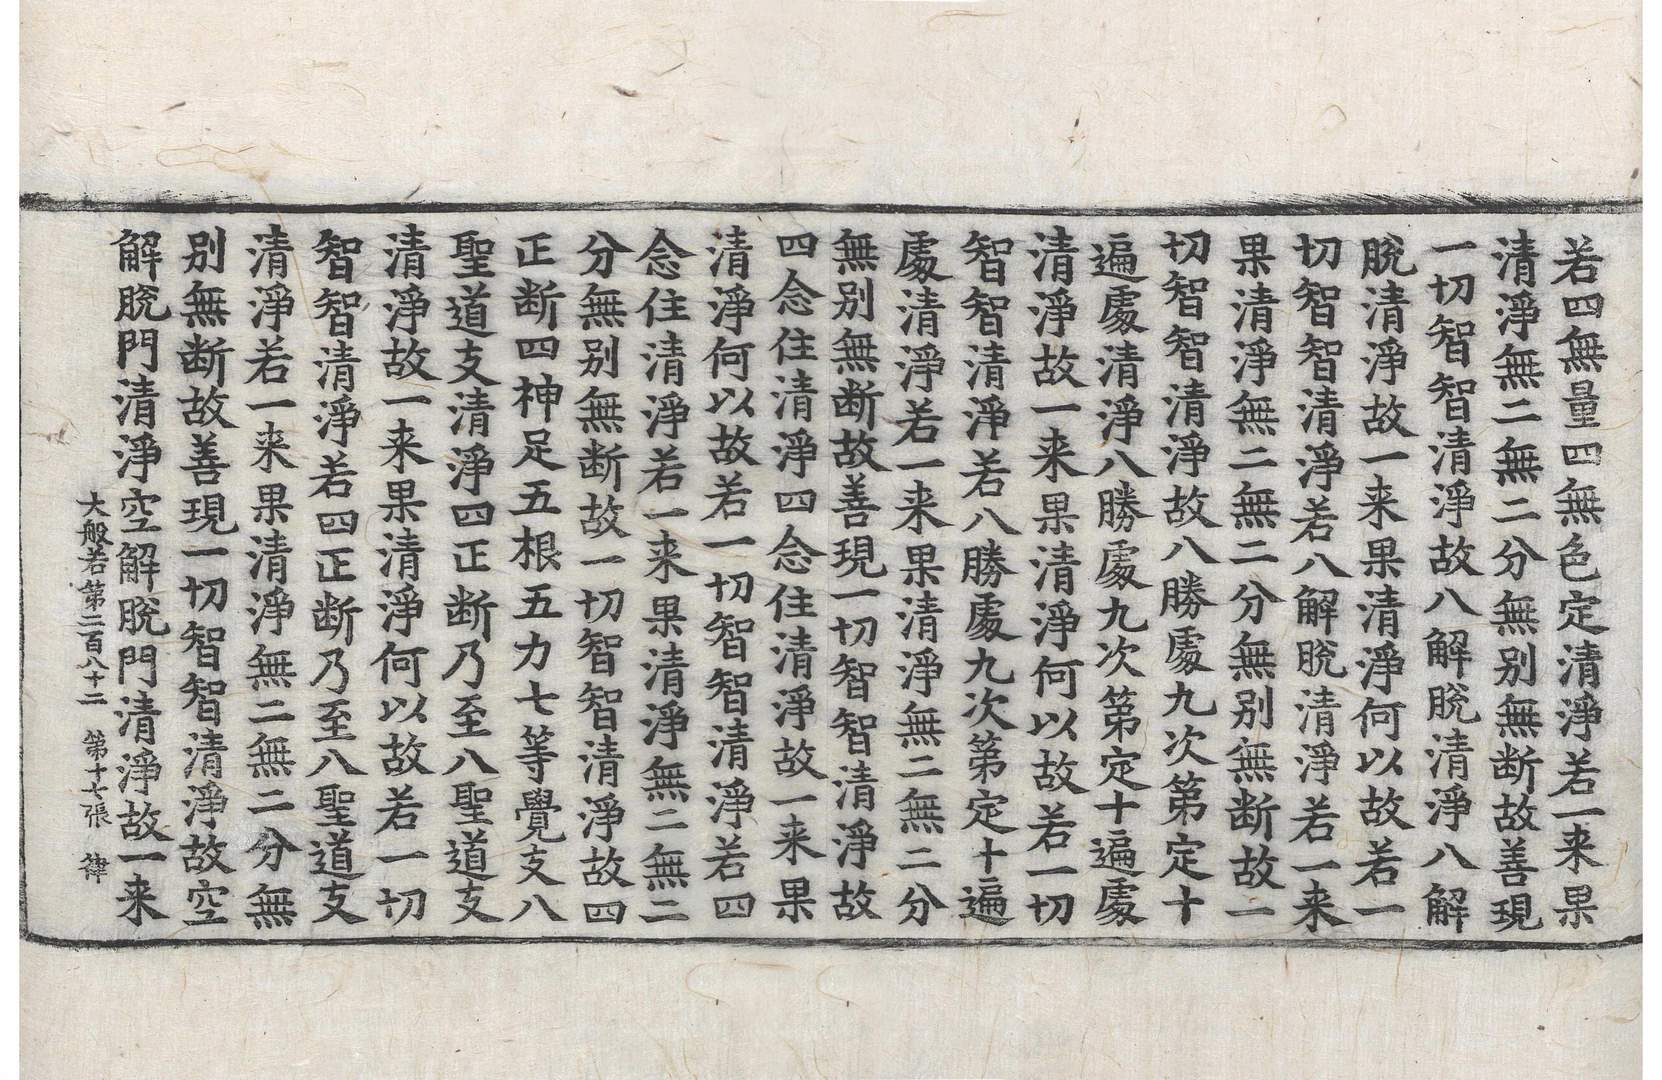 若四無量四無色定清淨若一来果
清淨無二無二分無别無断故善現
一切智智清淨故八解脫清淨八解
脫清淨故一来果清淨何以故若一
切智智清淨若八解脫清淨若一来
果清淨無二無二分無别無断故一
切智智清淨故八勝處九次第定十
遍處清淨八勝處九次第定十遍處
清淨故一来果清淨何以故若一切
智智清淨若八勝處九次第定十遍
處清淨若一来果清淨無二無二分
無别無断故善現一切智智清淨故
四念住清淨四念住清淨故一来果
清淨何以故若一切智智清淨若四
念住清淨若一来果清淨無二無二
分無别無断故一切智智清淨故四
正断四神足五根五力七等覺支八
聖道支清淨四正断乃至八聖道支
清淨故一来果清淨何以故若一切
智智清淨若四正断乃至八聖道支
清淨若一来果清淨無二無二分無
别無断故善現一切智智清淨故空
解脫門清淨空解脫門清淨故一来
大般若第二百八十二 第十七張 律